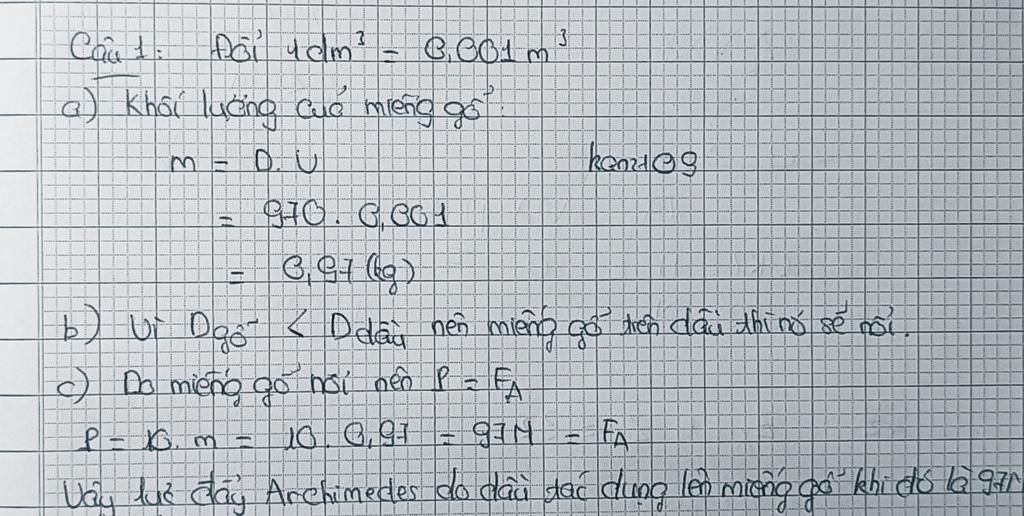 Câu 1: Đổi 1dm³ = 0,001 m³
a) Khối lượng của miếng gỗ:
m = D.V
kenz109
= 970 . 0,001
= 0,97 (kg)
b) Vì Dgỗ < Ddầu nên miếng gỗ trên dầu thì nó sẽ nổi.
c) Do miếng gỗ nổi nên P = FA
P = 10.m = 10.0,97 = 97N = FA
Vậy lực đẩy Archimedes do dầu tác dụng lên miếng gỗ khi đó là 97N